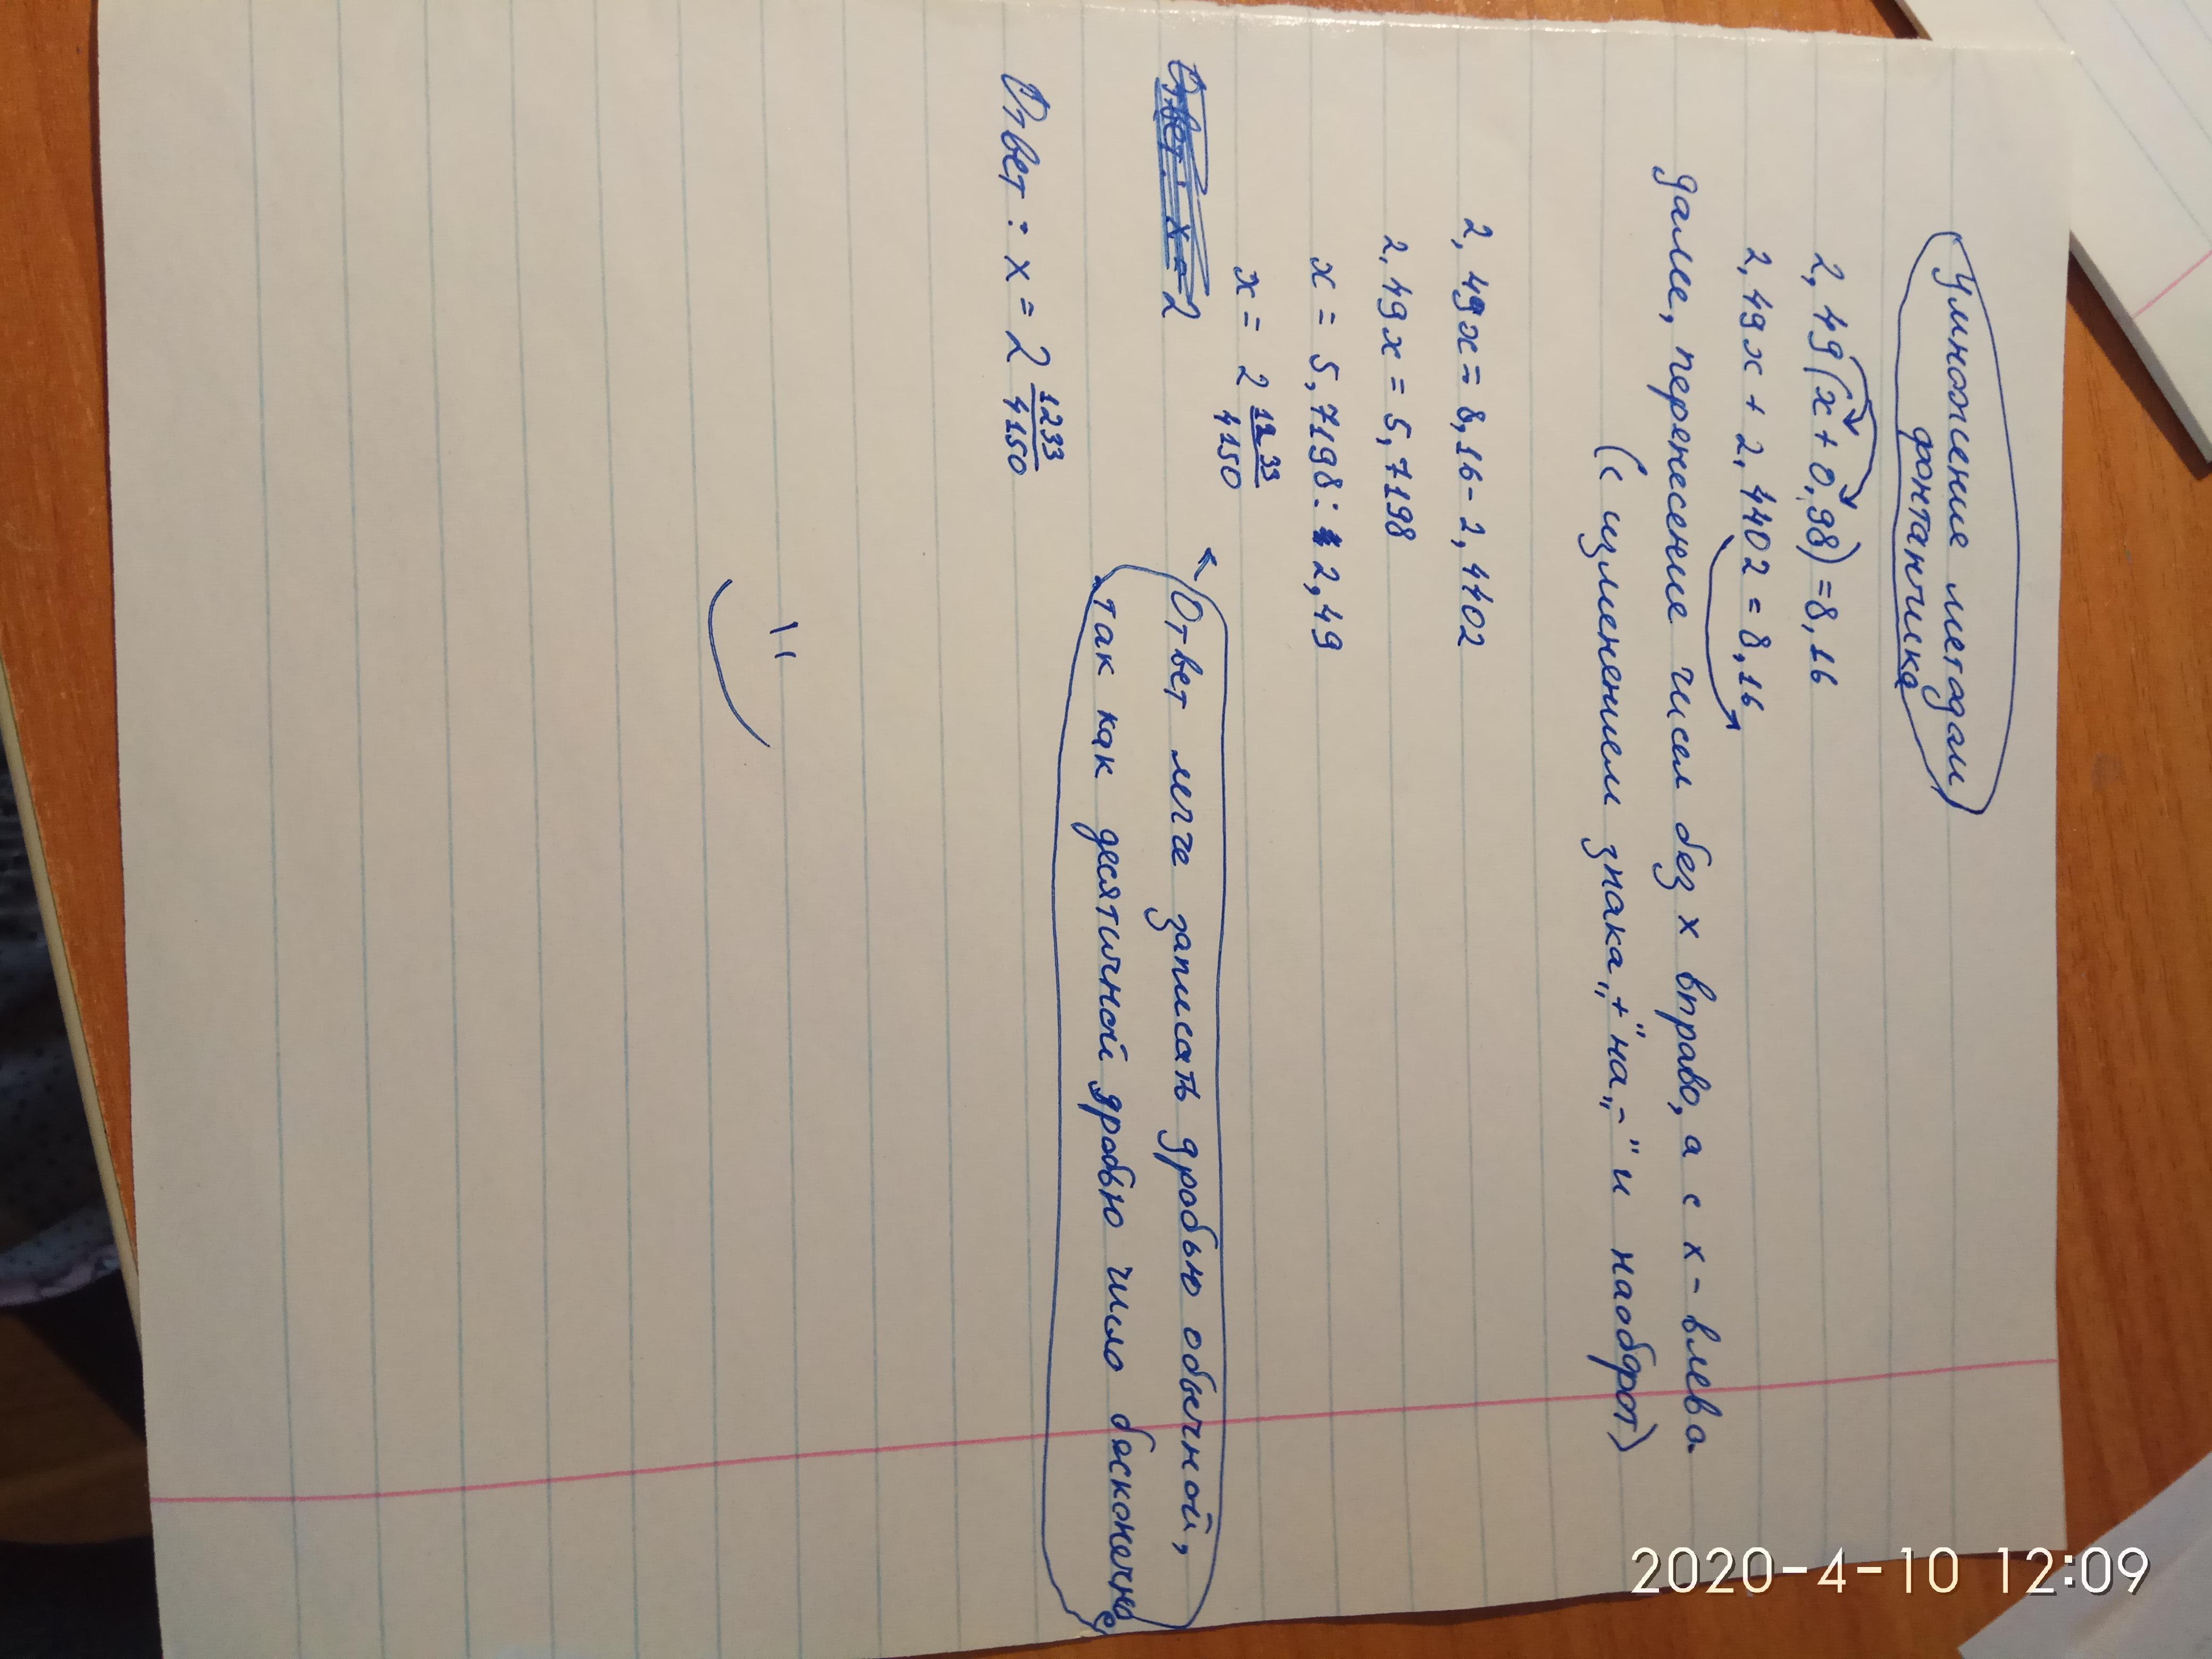 Умножение методом
фонтанчика
2,49(x+0,98)=8,16
2,49x+2,4402=8,16
далее, перенесение чисел без x вправо, а с x - влево
(с изменением знака „+" на „-" и наоборот)
2,49x=8,16-2,4402
2,49x=5,7198
x=5,7198:2,49
x=2 1233/4150
Ответ: x=2
Ответ легче записать дробью обычной,
так как десятичной дробью число бесконечно
Ответ: x=2 1233/4150
2020-4-10 12:09